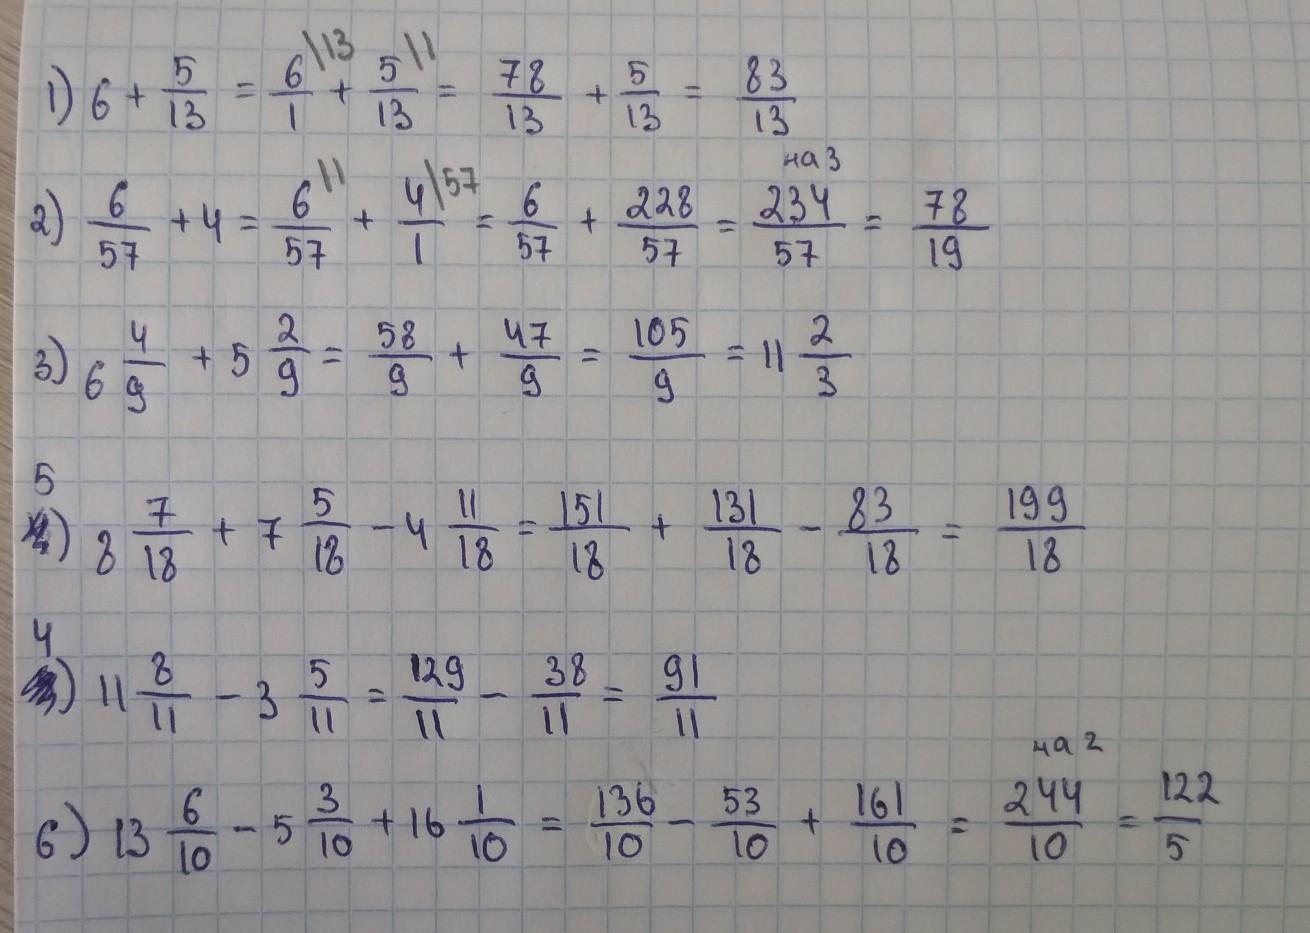 1) 6 + 5/13 = 6/1 \13 + 5/13 \1 = 78/13 + 5/13 = 83/13
2) 6/57 + 4 = 6/57 \1 + 4/1 \57 = 6/57 + 228/57 = 234/57 на 3 = 78/19
3) 6 4/9 + 5 2/9 = 58/9 + 47/9 = 105/9 = 11 2/3
5) 8 7/18 + 7 5/18 - 4 11/18 = 151/18 + 131/18 - 83/18 = 199/18
4) 11 8/11 - 3 5/11 = 129/11 - 38/11 = 91/11
6) 13 6/10 - 5 3/10 + 16 1/10 = 136/10 - 53/10 + 161/10 = 244/10 на 2 = 122/5